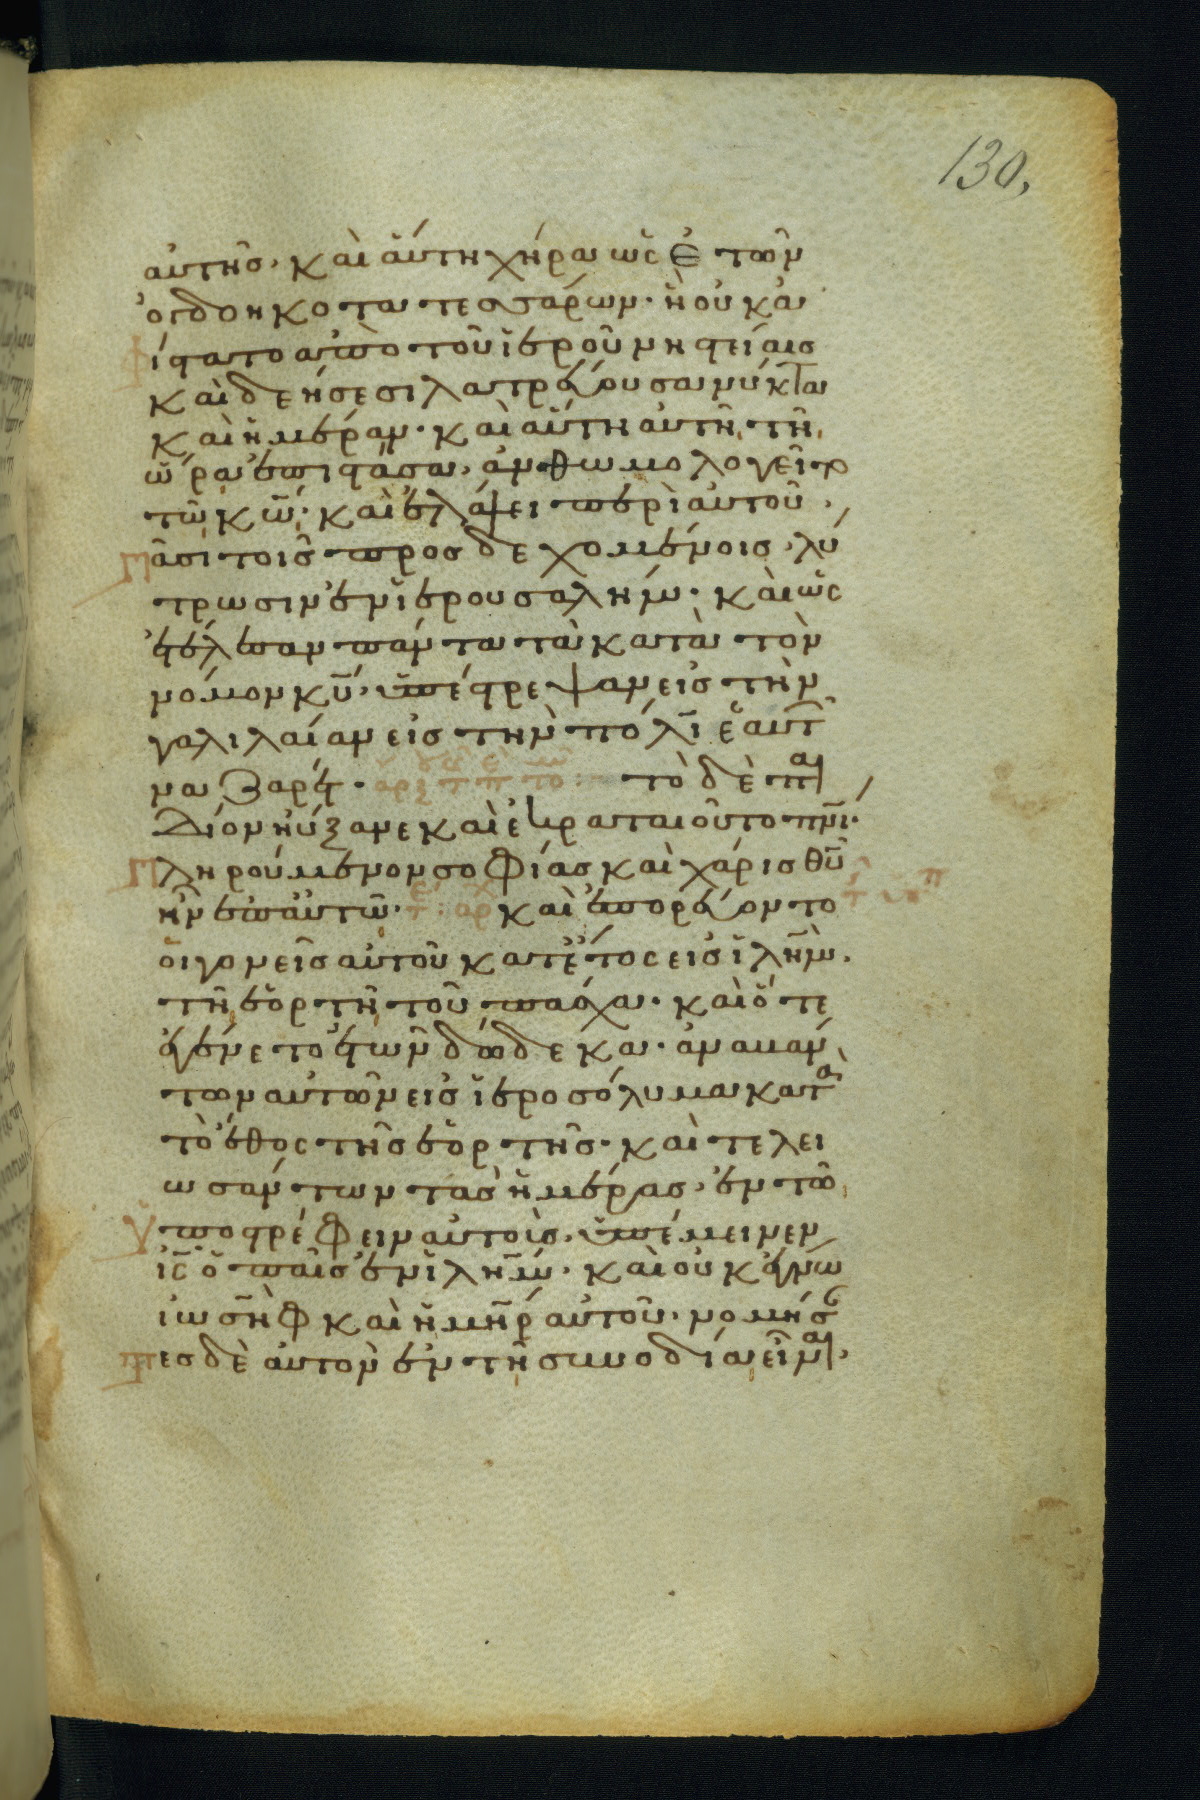 130,
αὐτῆσ· καὶ αὕτη χήρα ὡς ἐτῶν
ὀγδοηκοντα τεσσάρων· ἣ οὐκ ἀ
φίστατο ἀπὸ τοῦ ἱεροῦ νηστείαισ
καὶ δεήσεσι λατρεύουσα νύκτα
καὶ ἡμέραν· καὶ αὕτη αὐτῆ τῆ
ὥρα ἐπιστᾶσα· ἀνθωμολογεῖτο
τῶ κω̅· καὶ ἐλάλει περὶ αὐτοῦ·
πᾶσι τοῖσ προσδεχομένοισ λύ
τρωσιν ἐν ἱερουσαλήμ· καὶ ὡς
ἐτέλεσαν πάντα τὰ κατὰ τὸν
νόμον κυ̅· ὑπέστρεψαν εἰσ τὴν
γαλιλαίαν εἰσ τὴν πόλιν ἑαυτ
ναζαρέτ· τὸ δὲ παι
δίον ηὔξανε καὶ ἐκραταιοῦτο πνι̅·
πληρούμενον σοφίασ καὶ χάρισ θυ̅
ἦν ἐπ αὐτῶ· καὶ ἐπορεύοντο
οἱ γονεῖσ αὐτοῦ κατ ἔτος εἰσ ιλη̅μ·
τῆ ἑορτῆ τοῦ πάσχα· καὶ ὅτε
ἐγένετο ἐτῶν δώδεκα· ἀναβάν
των αὐτῶν εἰσ ἱεροσόλυμα κατὰ
τὸ ἔθος τῆσ ἑορτῆσ· καὶ τελει
ωσάντων τὰσ ἡμέρασ· ἐν τῶ
ὑποστρέφειν αὐτοὺσ· ὑπέμεινεν
ισ̅ ὁ παῖσ ἐν ιλη̅μ· καὶ οὐκ ἔγνω
ἰωσὴφ καὶ ἡ μη̅ρ αὐτοῦ· νομίσαν
τεσ δὲ αὐτὸν ἐν τῆ συνοδία εἶναι·